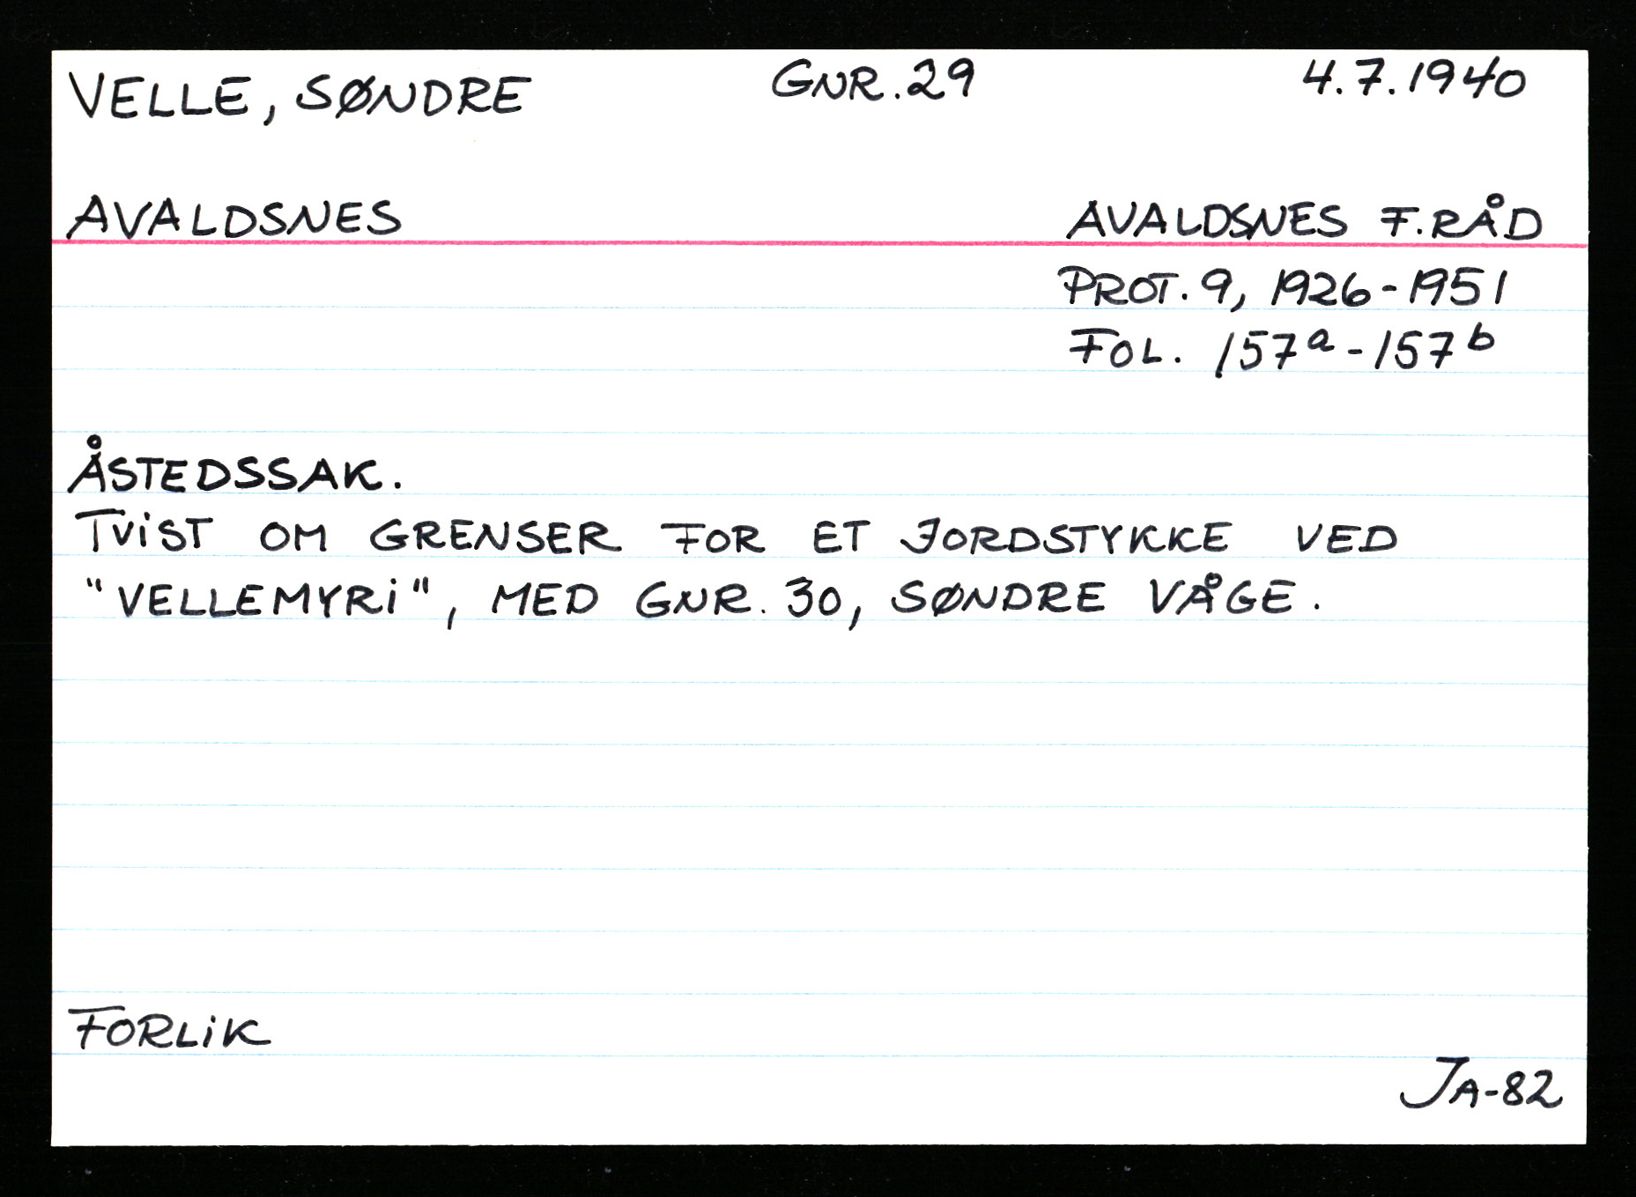 VELLE, SØNDRE GNR. 29 4.7.1940
AVALDSNES AVALDSNES F.RÅD
PROT. 9, 1926-1951
FOL. 157a-157b
ÅSTEDSSAK.
TViST OM GRENSER FOR ET JORDSTYKKE VED
"VELLEMYRi", MED GNR. 30, SØNDRE VÅGE.
FORLiK
JA-82